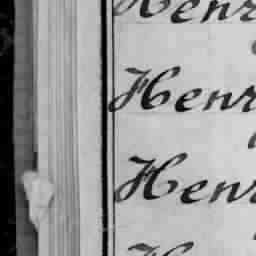 Henr
Henr
Henr